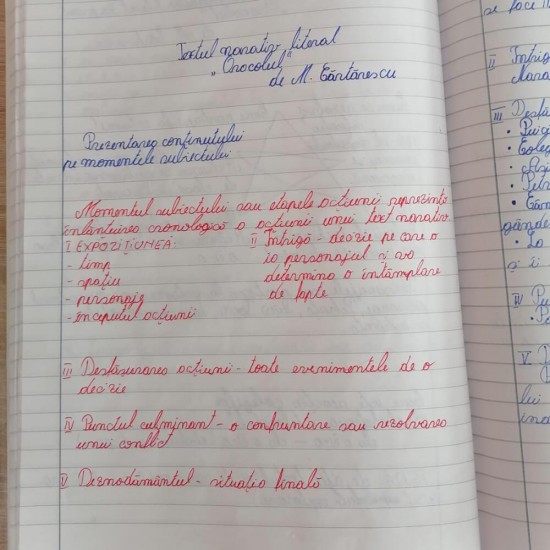 Textul narativ literal
„Oracolul”
de M. Cărtărescu
Prezentarea conținutului
pe momentele subiectului
Momentul subiectului sau etapele acțiunii reprezintă
înlănțuirea cronologică a acțiunii unui text narativ.
I EXPOZIȚIUNEA:
- timp
- spațiu
- personaje
- începutul acțiunii
II Intriga - decizie pe care o
ia personajul și va
determina o întâmplare
de fapte
III Desfășurarea acțiunii - toate evenimentele de o
decizie
IV Punctul culminant - o confruntare sau rezolvarea
unui conflict
V Deznodământul - situația finală
se face
II Intriga
Mara
III Desfă
•
• Coleg
•
• Petr
•
gândes
• Lo
și i
IV Pu
•
V
lui